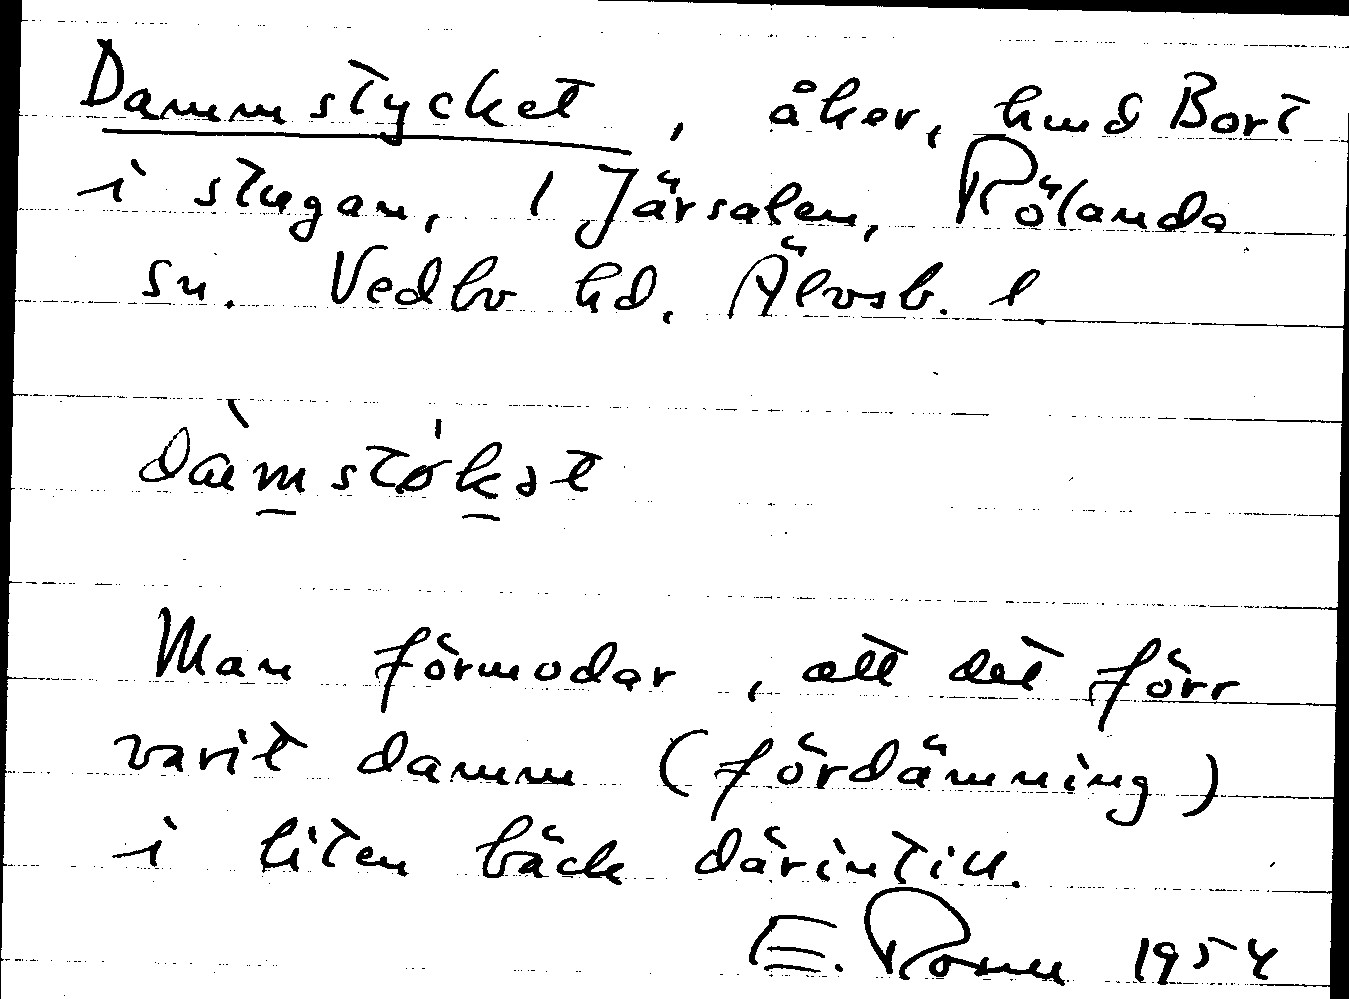 Dammstycket, åker, hmd Bort
i stugan, 1 Järsalem, Rölanda
sn. Vedbo hd. Älvsb. l.
dàmstø̍kət
Man förmodar, att det förr
varit damm (fördämning)
i liten bäck därintill.
E. 1954